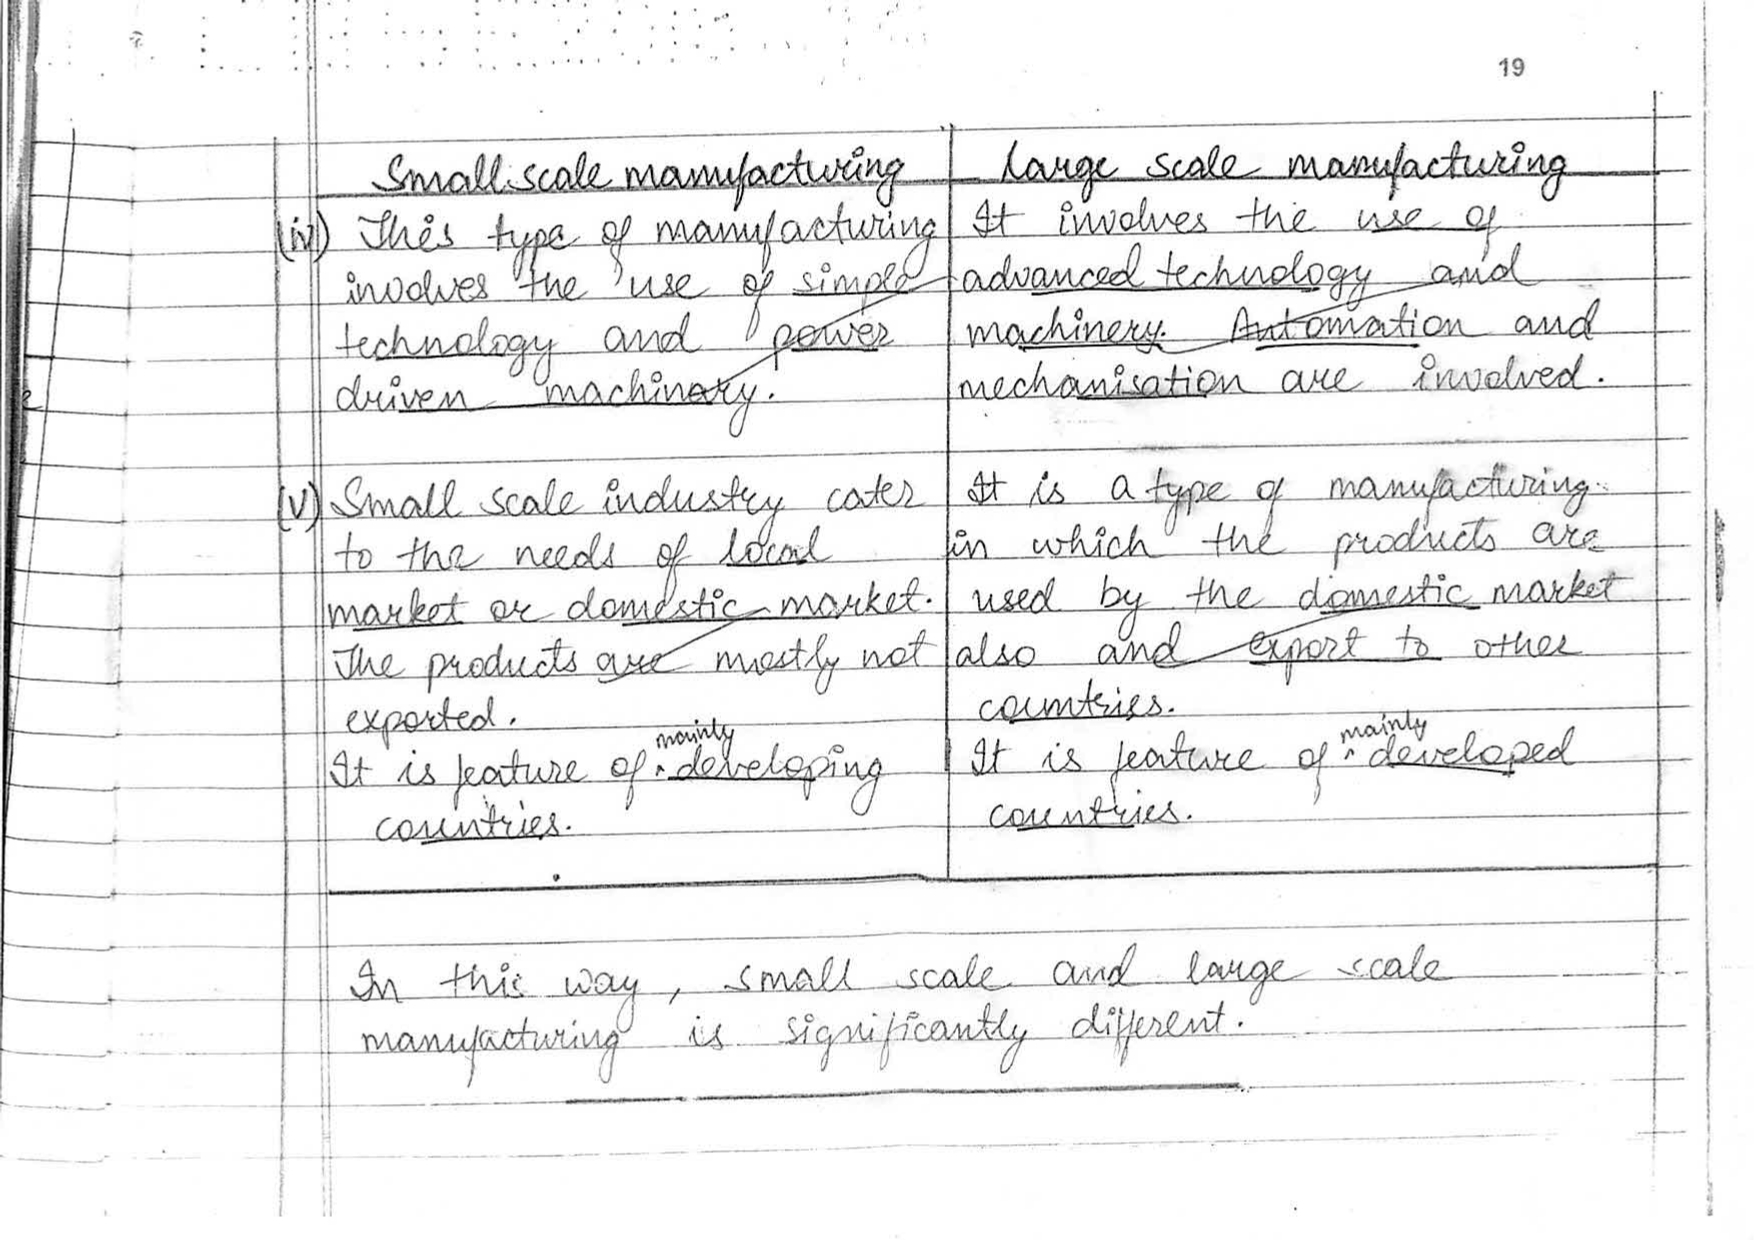 19
Small scale manufacturing
Large scale manufacturing
(iv) This type of manufacturing
involves the use of simple
technology and power
driven machinery.
It involves the use of
advanced technology and
machinery. Automation and
mechanisation are involved.
(v) Small scale industry cater
to the needs of local
market or domestic market.
The products are mostly not
exported.
It is feature of mainly developing
countries.
It is a type of manufacturing
in which the products are
used by the domestic market
also and export to other
countries.
It is feature of mainly developed
countries.
In this way, small scale and large scale
manufacturing is significantly different.